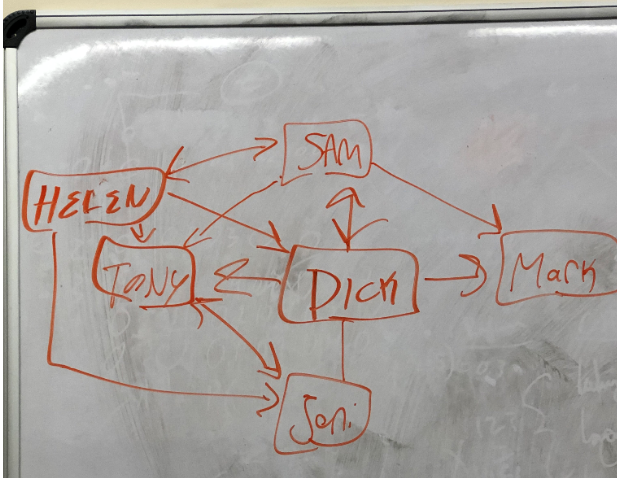 SAM
HELEN
TONY
DICK
Mark
Joni